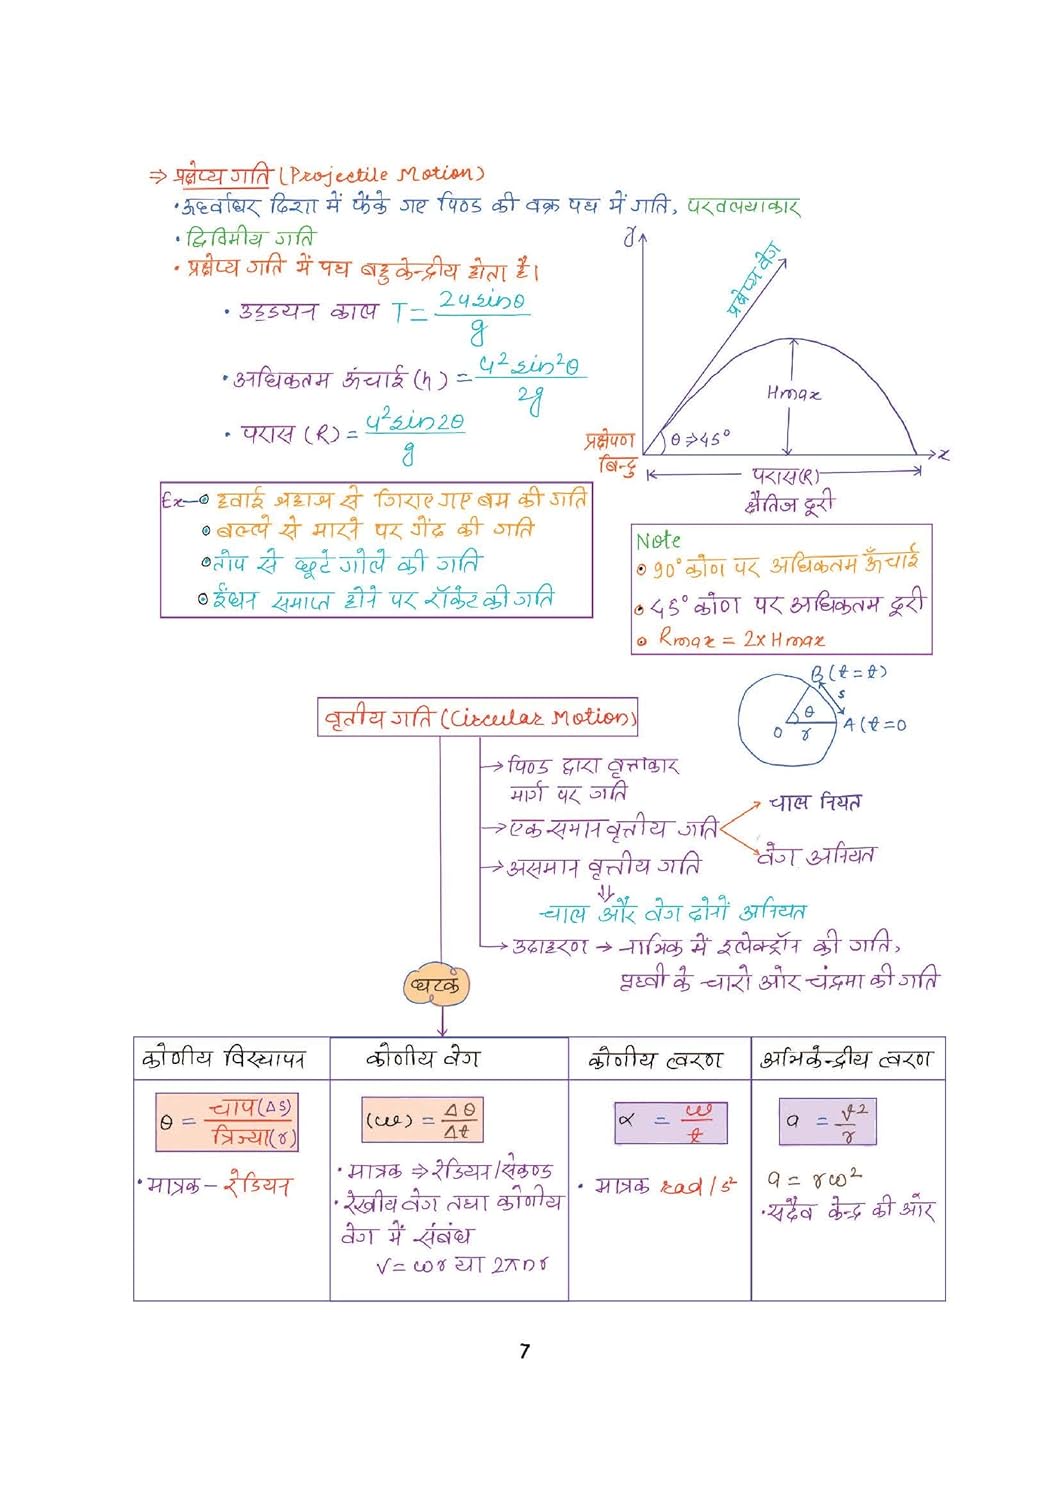 ⇒ प्रक्षेप्य गति (Projectile Motion)
• ऊर्ध्वाधर दिशा में फेंके गए पिण्ड की वक्र पथ में गति, परवलयाकार
• द्विविमीय गति
• प्रक्षेप्य गति में पथ बहुकेन्द्रीय होता है।
• उड्डयन काल T = 2u sinθ / g
• अधिकतम ऊंचाई (h) = u² sin²θ / 2g
• परास (R) = u² sin2θ / g
y
प्रक्षेप्य वेग
Hmax
θ ⇒ 45°
x
प्रक्षेपण
बिन्दु
परास (R)
क्षैतिज दूरी
Ex– हवाई जहाज से गिराए गए बम की गति
बल्ले से मारने पर गेंद की गति
तोप से छूटे गोले की गति
ईंधन समाप्त होने पर रॉकेट की गति
Note
90° कोण पर अधिकतम ऊँचाई
45° कोण पर अधिकतम दूरी
Rmax = 2x Hmax
B (t = t)
s
θ
O r A (t = 0
वृतीय गति (Circular Motion)
→ पिण्ड द्वारा वृत्ताकार
मार्ग पर गति
→ एक समान वृत्तीय गति
चाल नियत
वेग अनियत
→ असमान वृत्तीय गति
⇓
चाल और वेग दोनों अनियत
→ उदाहरण → नाभिक में इलेक्ट्रॉन की गति,
पृथ्वी के चारो ओर चंद्रमा की गति
घटक
कोणीय विस्थापन
θ = चाप (Δs) / त्रिज्या (r)
• मात्रक – रेडियन
कोणीय वेग
(ω) = Δθ / Δt
• मात्रक ⇒ रेडियन/सेकण्ड
• रेखीय वेग तथा कोणीय
वेग में संबंध
v = ωr या 2πnr
कोणीय त्वरण
α = ω / t
• मात्रक rad/s²
अभिकेन्द्रीय त्वरण
a = v² / r
a = rω²
• सदैव केन्द्र की ओर
7